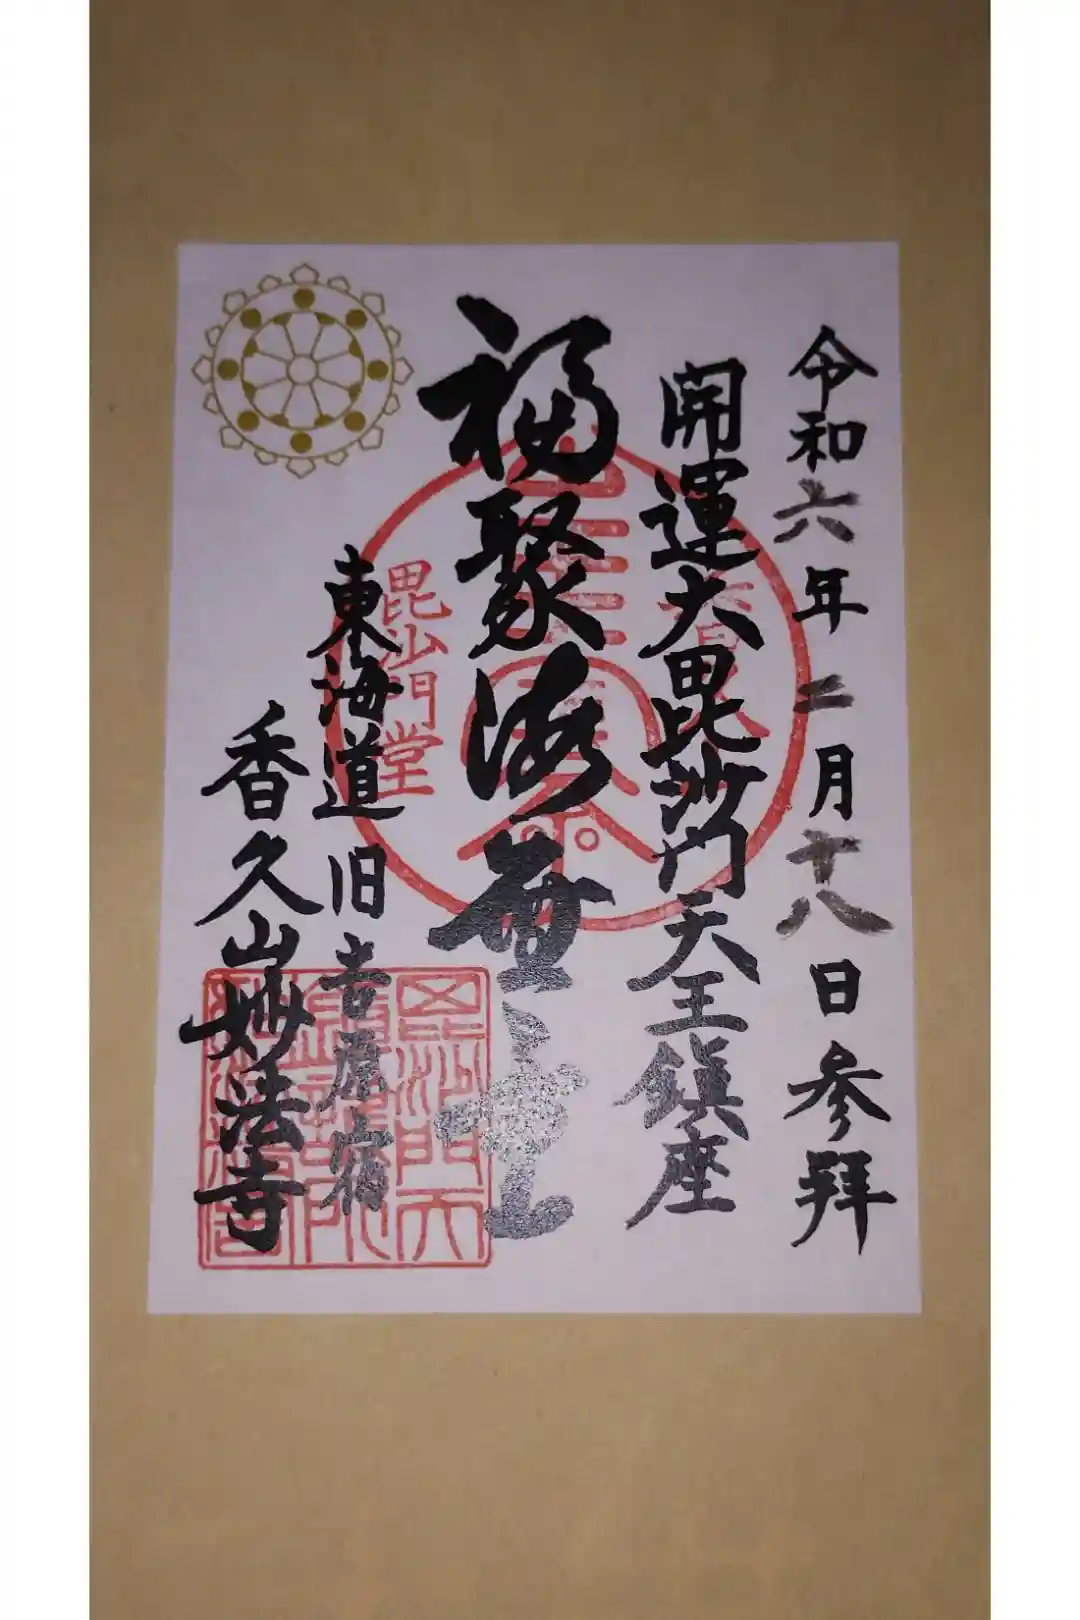 令和六年二月十八日参拝
開運大毘沙門天王鎮座
福聚海無量
毘沙門堂
東海道旧吉原宿
香久山妙法寺